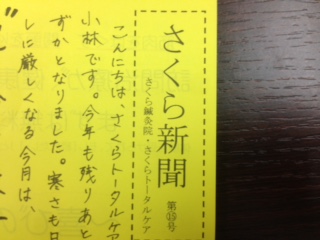 さくら新聞
第⑲号
さくら鍼灸院・さくらトータルケア
こんにちは、さくらトータルケア
小林です。今年も残りあと
ずかとなりました。寒さも日
しに厳しくなる今月は、